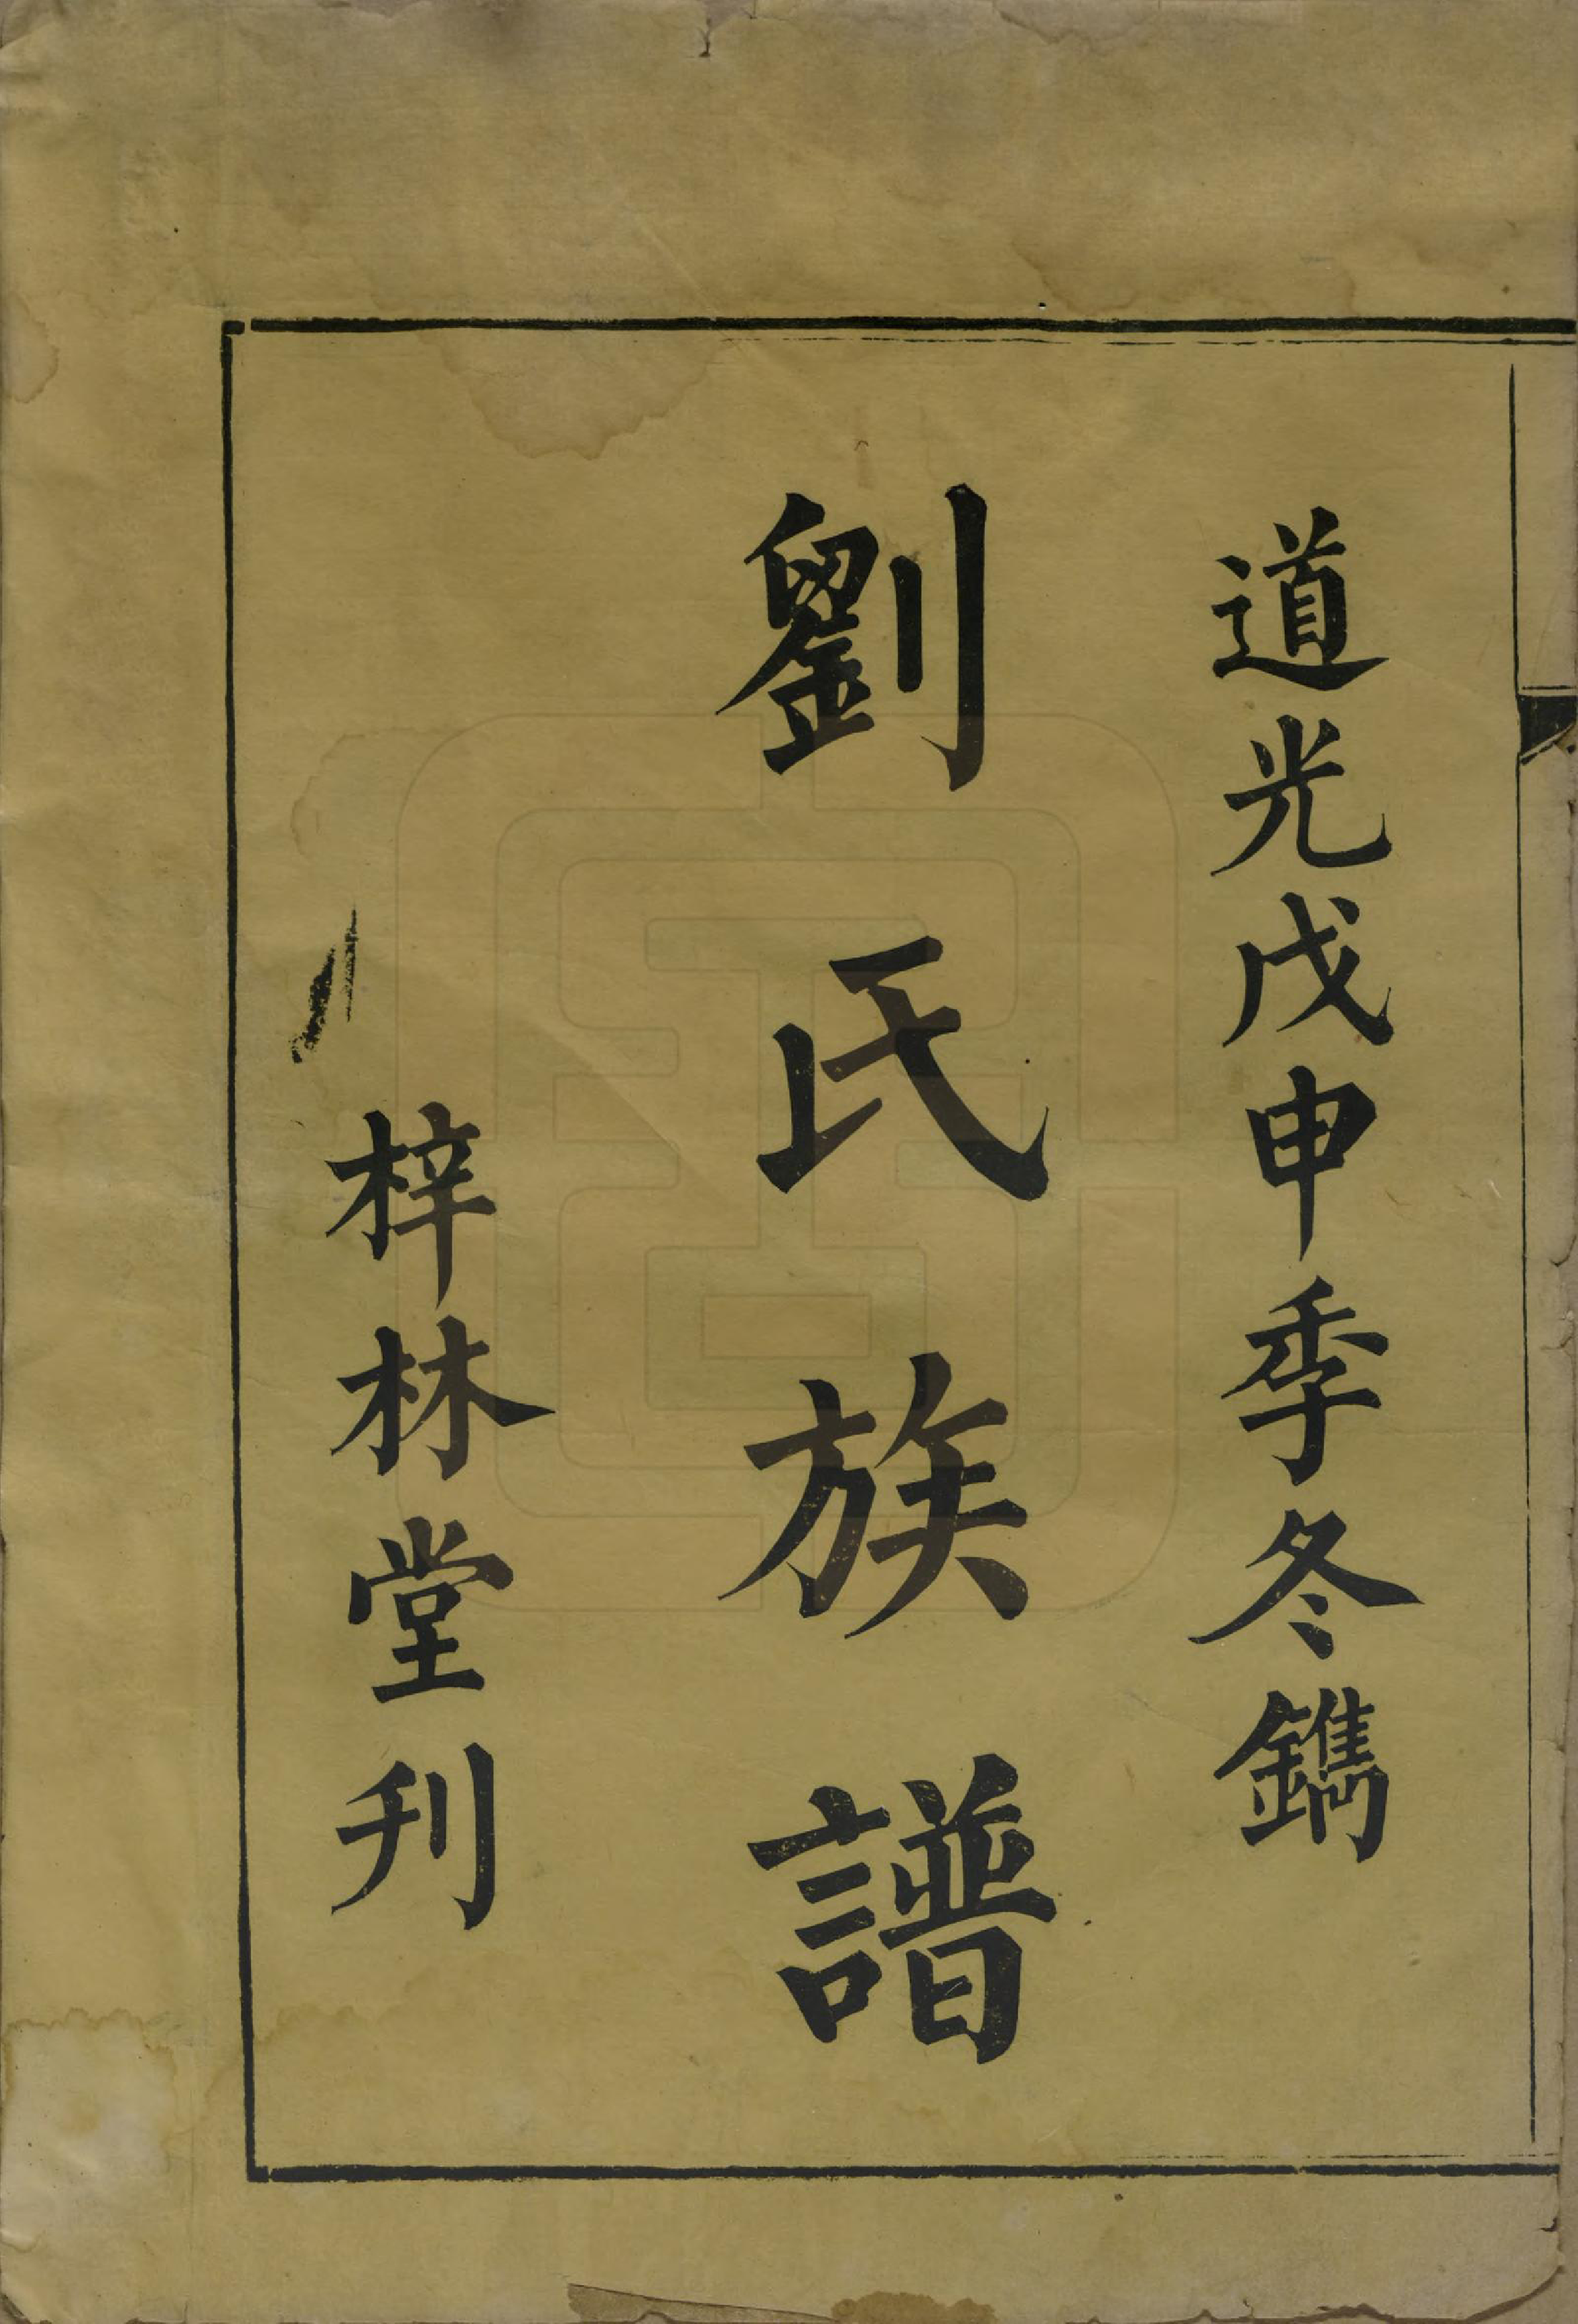 道光戊申季冬鐫
劉氏族譜
梓林堂刊